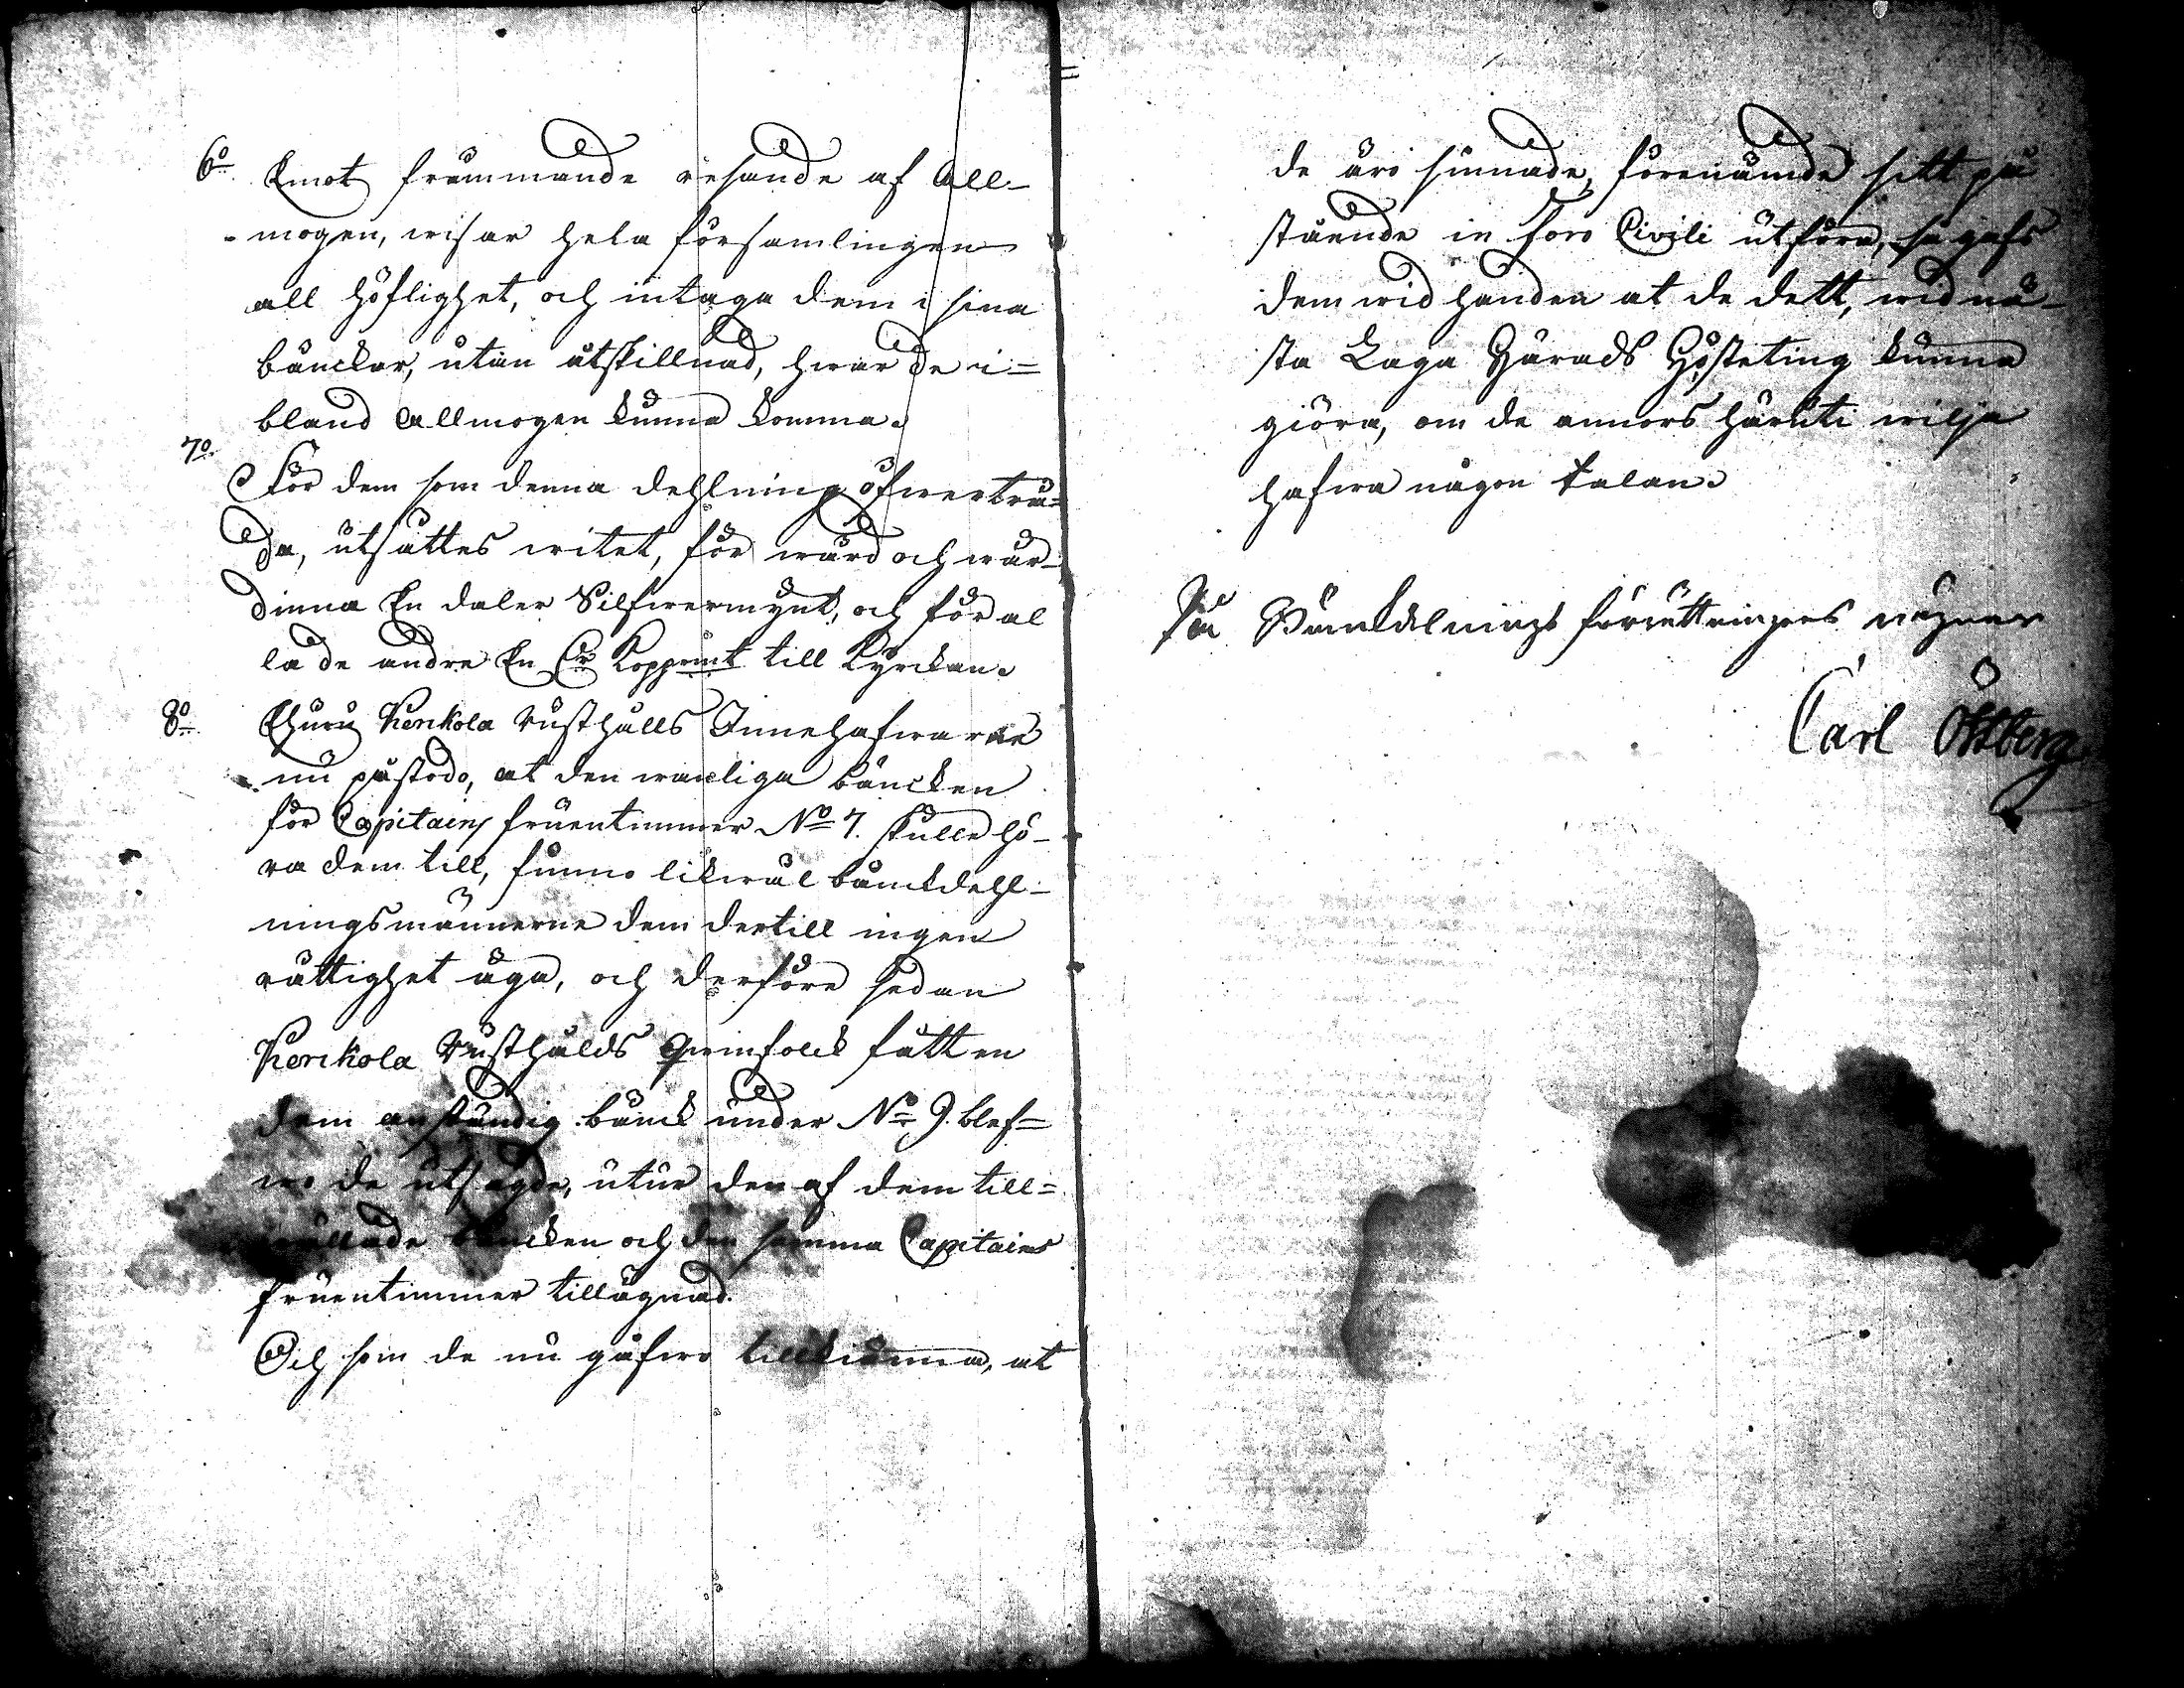 6o Emot främmande resande af All-
mogen, wisar hela församlingen
all höflighet, och intaga dem i sina
bänckar, utan åtskillnad, hwar de i=
bland Allmogen kunna komma.
7o.
För dem som denna dehlning öfwerträ=
da, utsattes witet, för wärd och wär-
dinna En daler Silfwermynt, och för al
la de andre En Kopprmt till Kyrckan.
8o Ehuru Kerikola Rusthålls Innehafwarne
nu påstodo, at den wanliga bäncken
för Capitains fruentimmer No 7. skulle hö-
ra dem till, funno likwäl bänckdehl-
ningsmännerne dem dertill ingen
rättighet äga, och derföre sedan
Kerikola Rusthålds qwinfolck fått en
dem anständig bänck under No 9. blef=
wo de utsagde, utur den af dem till=
wällade bäncken och den samma Capitains
fruentimmer tillägnad.
Och som de nu gåfwo tillkiänna, at
de äro sinnade, förenämde sitt på
stående in Foro Civili utföra, så gafs
dem wid handen at de dett, wid nä-
sta Laga Härads Hösteting kunna
giöra, om de annors häruti wilja
hafwa någon talan.
På Bänckdelnings förrättningens wägnar
Carl Östberg